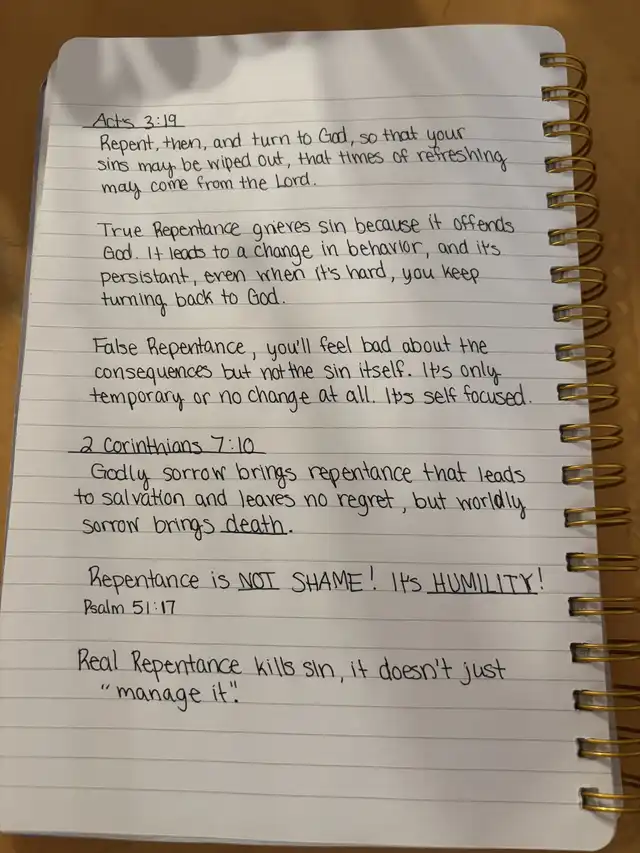 Acts 3:19
Repent, then, and turn to God, so that your
sins may be wiped out, that times of refreshing
may come from the Lord.
True Repentance grieves sin because it offends
God. It leads to a change in behavior, and it's
persistant, even when it's hard, you keep
turning back to God.
False Repentance, you'll feel bad about the
consequences but not the sin itself. It's only
temporary or no change at all. It's self focused.
2 Corinthians 7:10
Godly sorrow brings repentance that leads
to salvation and leaves no regret, but worldly
sorrow brings death.
Repentance is NOT SHAME! It's HUMILITY!
Psalm 51:17
Real Repentance kills sin, it doesn't just
"manage it".